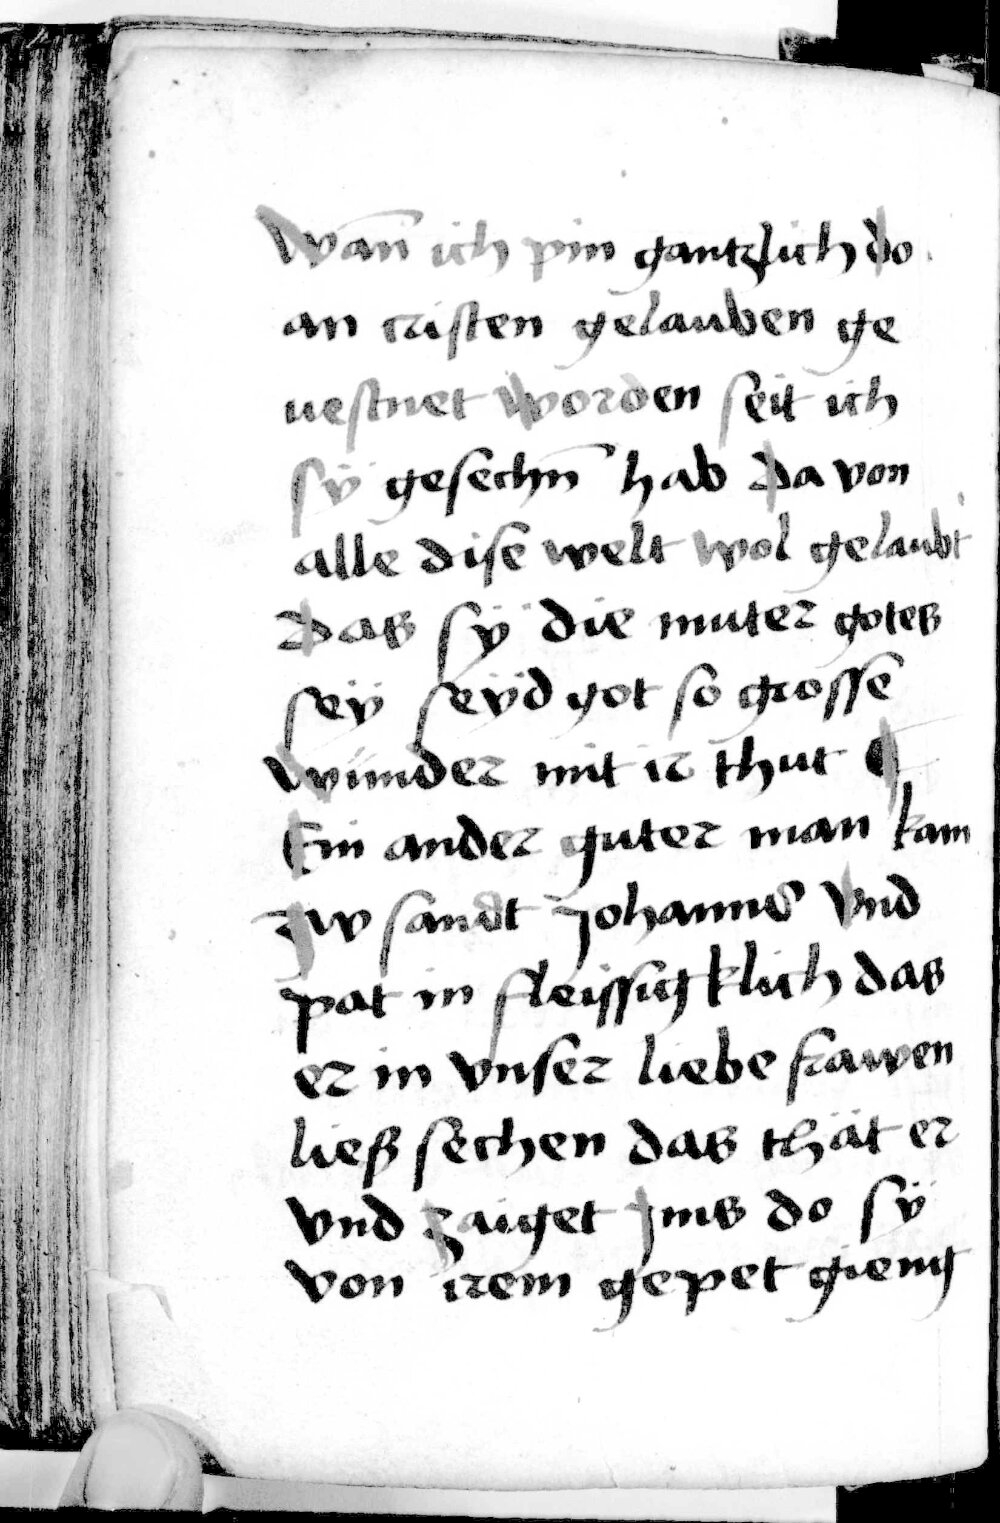 Wan̄ ich pin gantzlich do
an cristen gelauben ge
uestnet worden seit ich
sÿ gesechn̄ hab Da von
alle dise welt wol gelaubt
Das sÿ die muter gotes
seÿ seÿd got so grosse
Wunder mit ir thut ¶
Ein ander guter man kam
Zw sandt Johannes Vnd
pat in fleissigklich das
er in vnser liebe frawen
ließ sechen das thät er
vnd zaiget jms do sÿ
von irem gepet gieng